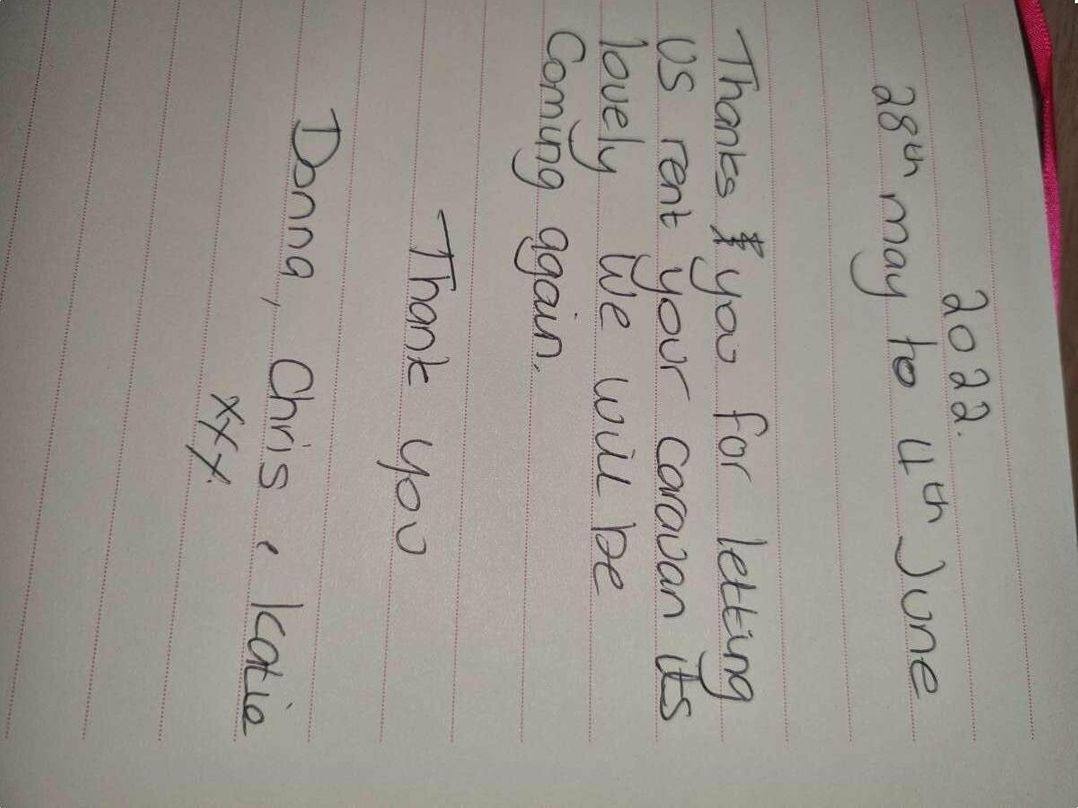 2022.
28th may to 4th June
Thanks you for letting
us rent your caravan its
lovely We will be
Coming again.
Thank you
Donna, Chris, Katie
xxx.